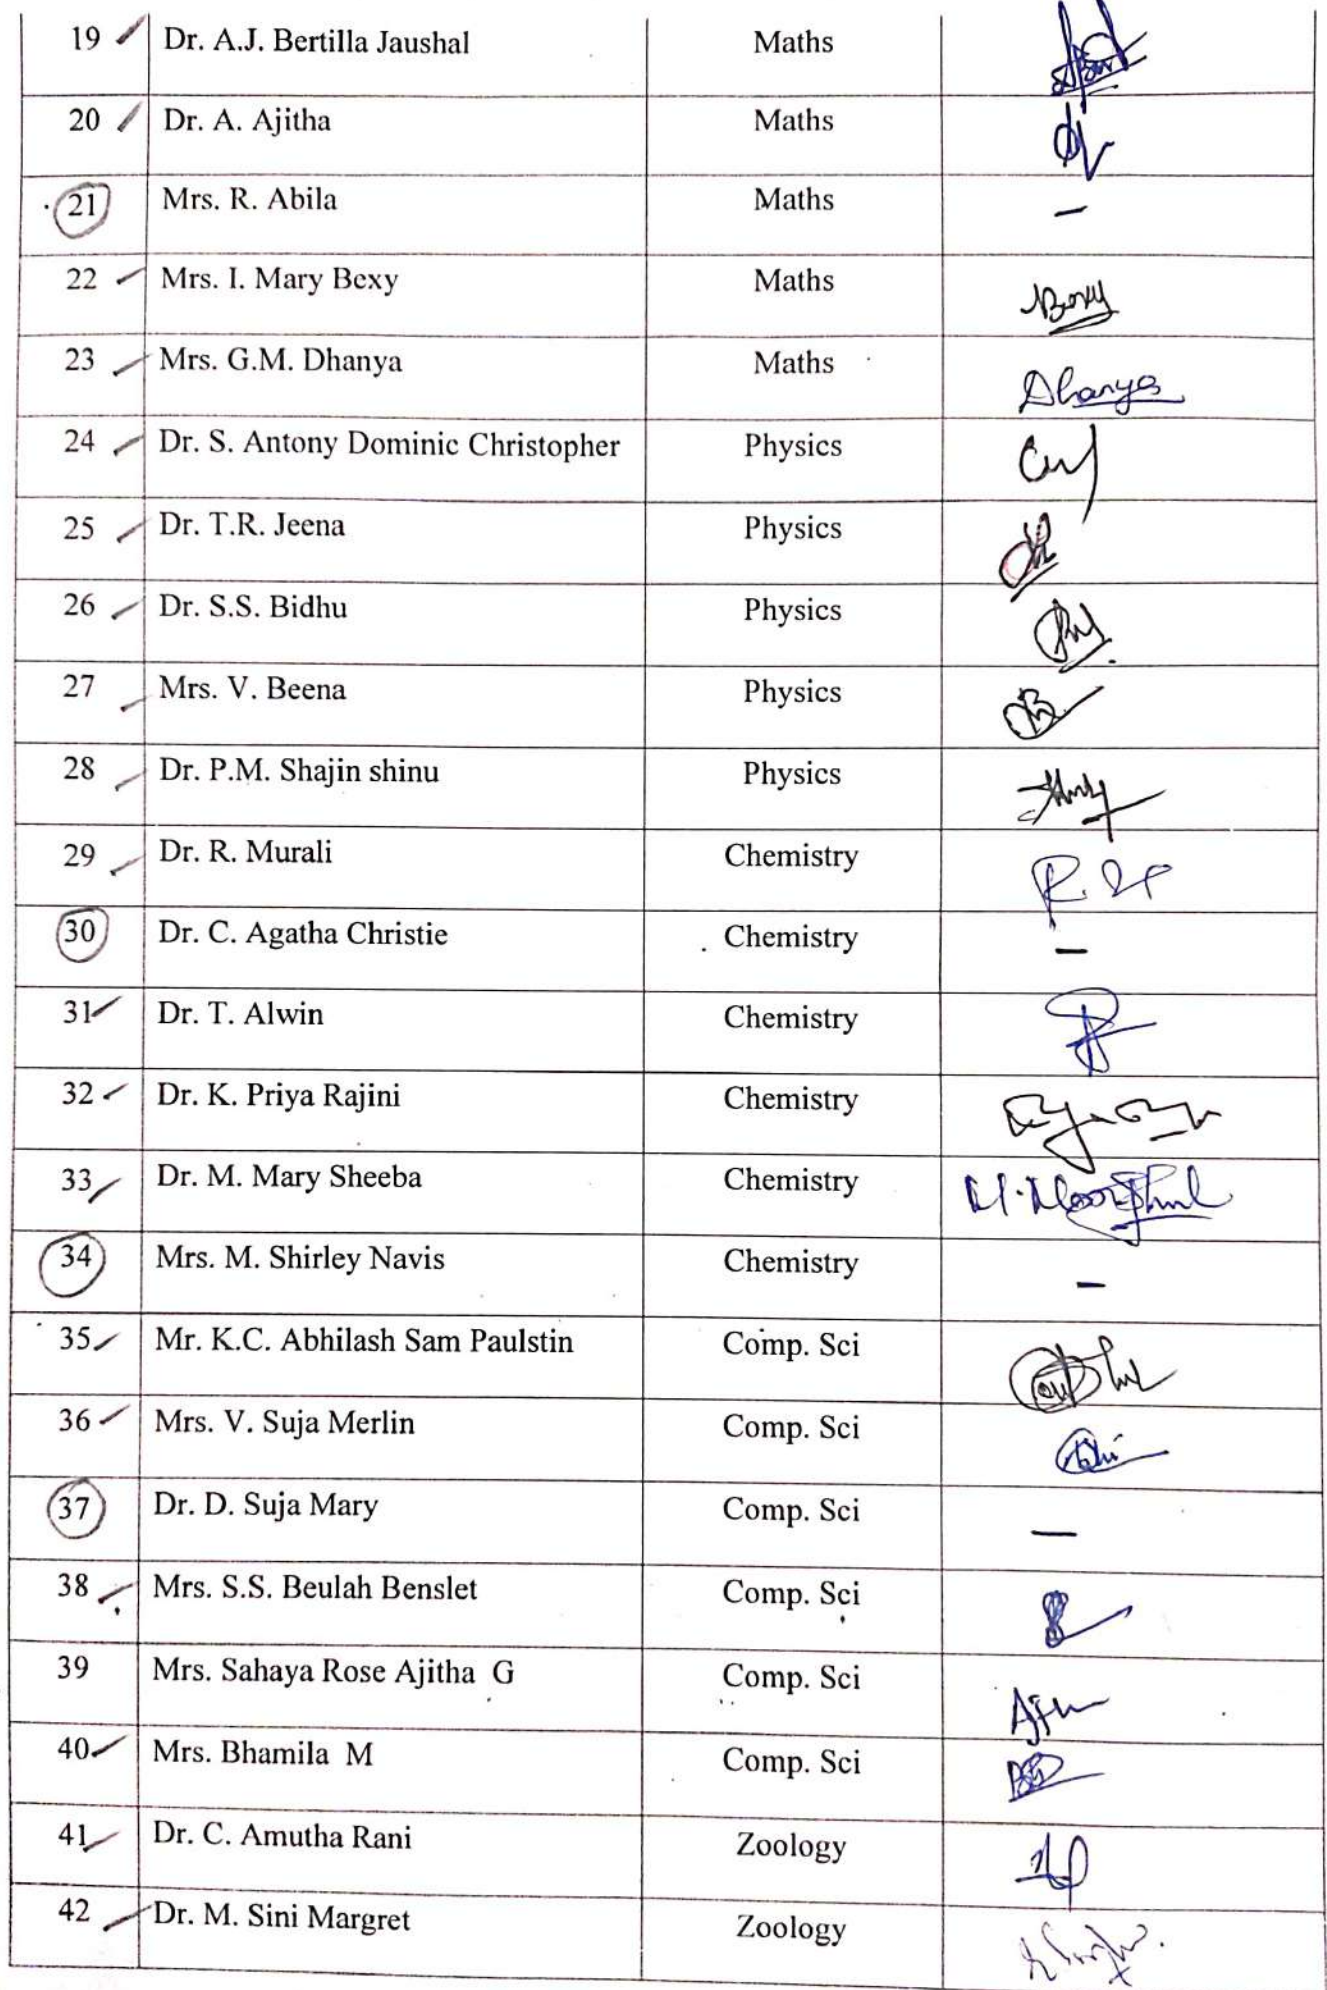 19 Dr. A.J. Bertilla Jaushal Maths
20 Dr. A. Ajitha Maths
21 Mrs. R. Abila Maths –
22 Mrs. I. Mary Bexy Maths Bexy
23 Mrs. G.M. Dhanya Maths Dhanya
24 Dr. S. Antony Dominic Christopher Physics
25 Dr. T.R. Jeena Physics
26 Dr. S.S. Bidhu Physics
27 Mrs. V. Beena Physics
28 Dr. P.M. Shajin shinu Physics
29 Dr. R. Murali Chemistry
30 Dr. C. Agatha Christie Chemistry –
31 Dr. T. Alwin Chemistry
32 Dr. K. Priya Rajini Chemistry
33 Dr. M. Mary Sheeba Chemistry
34 Mrs. M. Shirley Navis Chemistry –
35 Mr. K.C. Abhilash Sam Paulstin Comp. Sci
36 Mrs. V. Suja Merlin Comp. Sci
37 Dr. D. Suja Mary Comp. Sci –
38 Mrs. S.S. Beulah Benslet Comp. Sci
39 Mrs. Sahaya Rose Ajitha G Comp. Sci
40 Mrs. Bhamila M Comp. Sci
41 Dr. C. Amutha Rani Zoology
42 Dr. M. Sini Margret Zoology